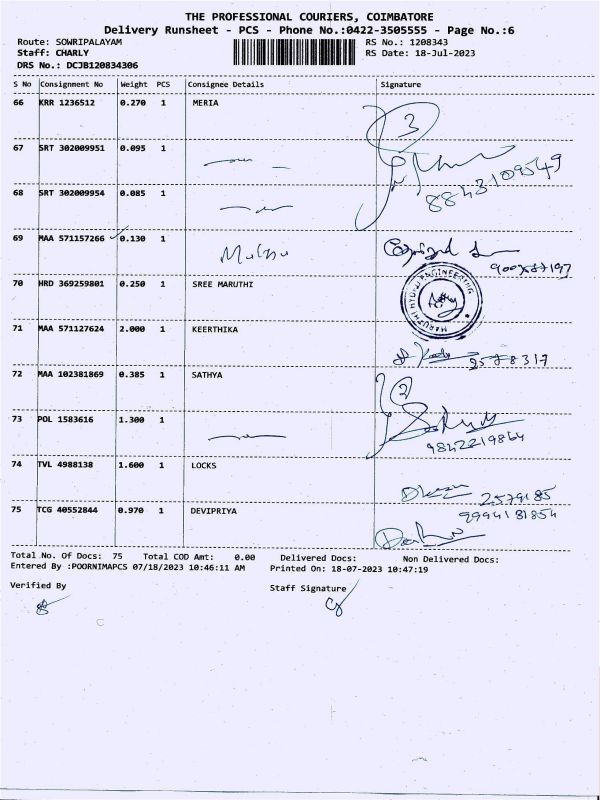 THE PROFESSIONAL COURIERS, COIMBATORE
Delivery Runsheet - PCS - Phone No.:0422-3505555 - Page No.:6
Route: SOWRIPALAYAM RS No.: 1208343
Staff: CHARLY RS Date: 18-Jul-2023
DRS No.: DCJB120834306
S No Consignment No Weight PCS Consignee Details Signature
66 KRR 1236512 0.270 1 MERIA
3
67 SRT 302009951 0.095 1
8843109549
68 SRT 302009954 0.085 1
69 MAA 571157266 0.130 1
70 HRD 369259801 0.250 1 SREE MARUTHI
71 MAA 571127624 2.000 1 KEERTHIKA
72 MAA 102381869 0.385 1 SATHYA
2
73 POL 1583616 1.300 1
9842219864
74 TVL 4988138 1.600 1 LOCKS
2579185
75 TCG 40552844 0.970 1 DEVIPRIYA
9994181854
Total No. Of Docs: 75 Total COD Amt: 0.00 Delivered Docs: Non Delivered Docs:
Entered By :POORNIMAPCS 07/18/2023 10:46:11 AM Printed On: 18-07-2023 10:47:19
Verified By Staff Signature